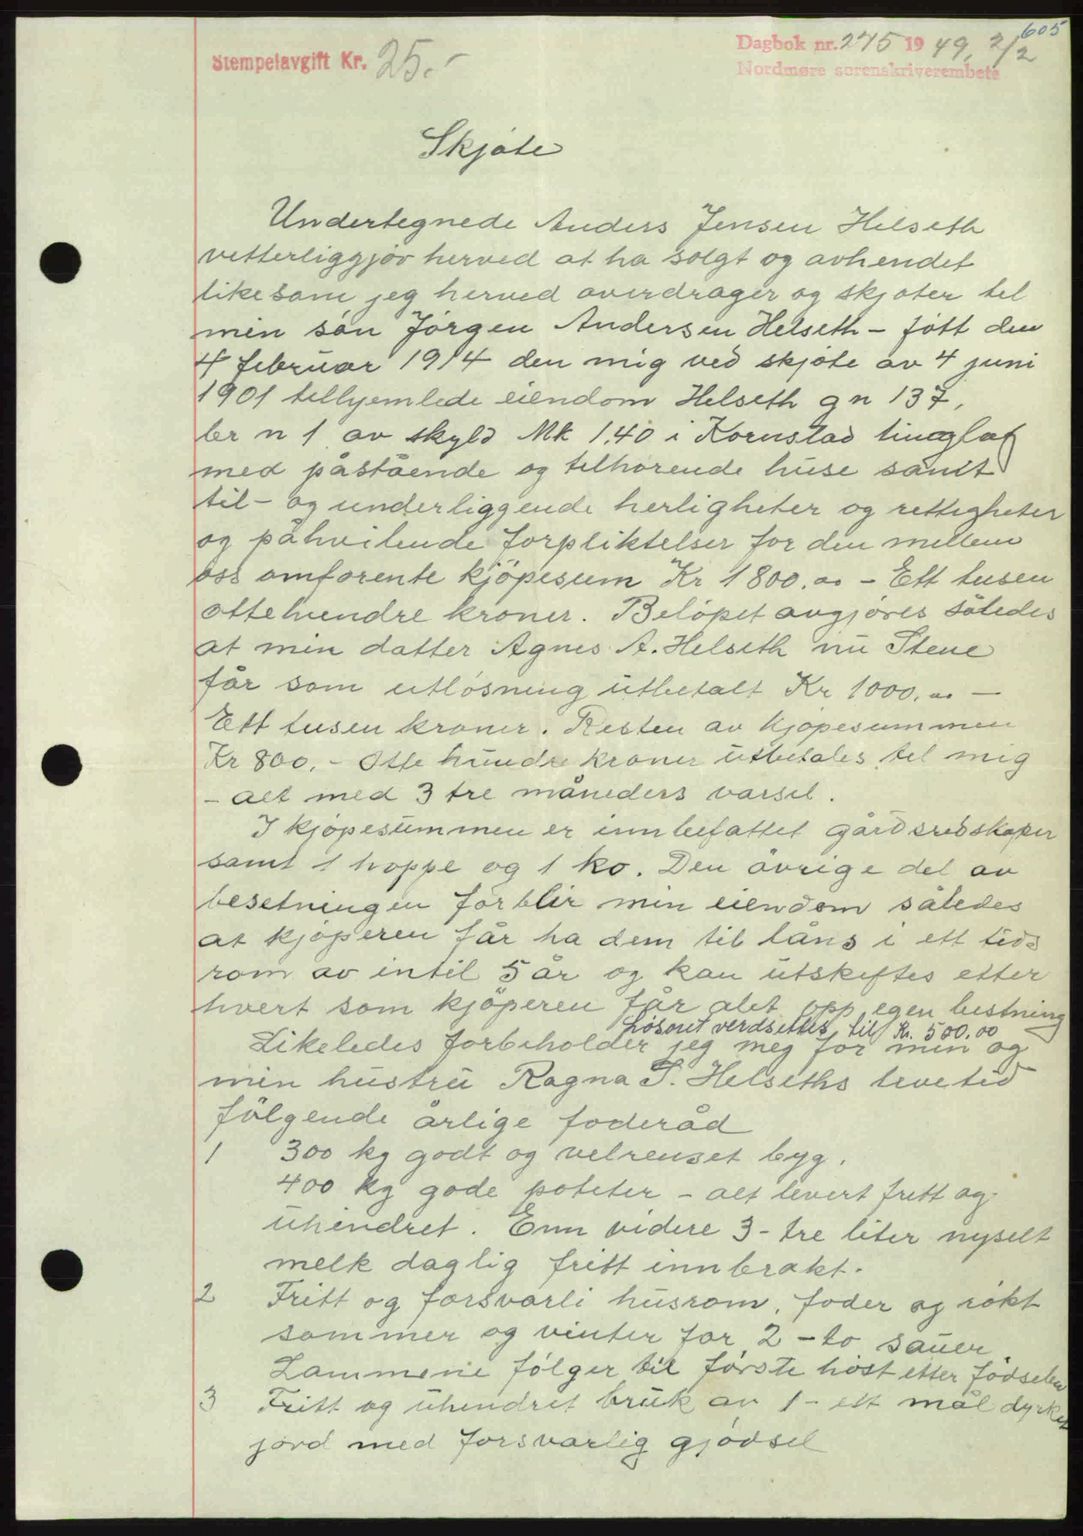 605
Stempelavgift Kr. 25.-
Dagbok nr. 275 1949, 2/2
Nordmøre sorenskriverembete
Skjøte
Undertegnede Anders Jensen Helseth
vitterliggjør herved at ha solgt og avhendet
likesom jeg herved overdrager og skjøter til
min søn Jørgen Andersen Helseth - født den
4 februar 1914 den mig ved skjøte av 4 juni
1901 tilhjemlede eiendom Helseth g n 137,
br n 1 av skyld Mk 1.40 i Kornstad tinglag
med påstående og tilhørende huse samt
til- og underliggende herligheter og rettigheter
og påhvilende forpliktelser for den mellem
oss omforente kjøpesum Kr 1800.oo - Ett tusen
ottehundre kroner. Beløpet avgjøres således
at min datter Agnes A. Helseth nu Stene
får som utløsning utbetalt Kr 1000.oo -
Ett tusen kroner. Resten av kjøpesummen
Kr 800.- Otte hundre kroner utbetales til mig
- alt med 3 tre måneders varsel.
I kjøpesummen er innbefattet gårdsredskaper
samt 1 hoppe og 1 ko. Den øvrige del av
besetningen forblir min eiendom således
at kjøperen får ha dem til låns i ett tids
rom av intil 5 år og kan utskiftes etter
hvert som kjøperen får alet opp egen bestning
Løsøret verdsettes til Kr. 500.00
Likeledes forbeholder jeg meg for min og
min hustru Ragna T. Helseths levetid
følgende årlige føderåd
1 300 kg godt og velrenset byg.
400 kg gode poteter - alt levert fritt og
uhindret. Enn videre 3 - tre liter nyselt
melk daglig fritt innbrakt.
2 Fritt og forsvarli husrom, foder og røkt
sommer og vinter for 2 - to sauer
Lammene følger til første høst etter fødselen
3 Fritt og uhindret bruk av 1 - ett mål dyrket
jord med forsvarlig gjødsel